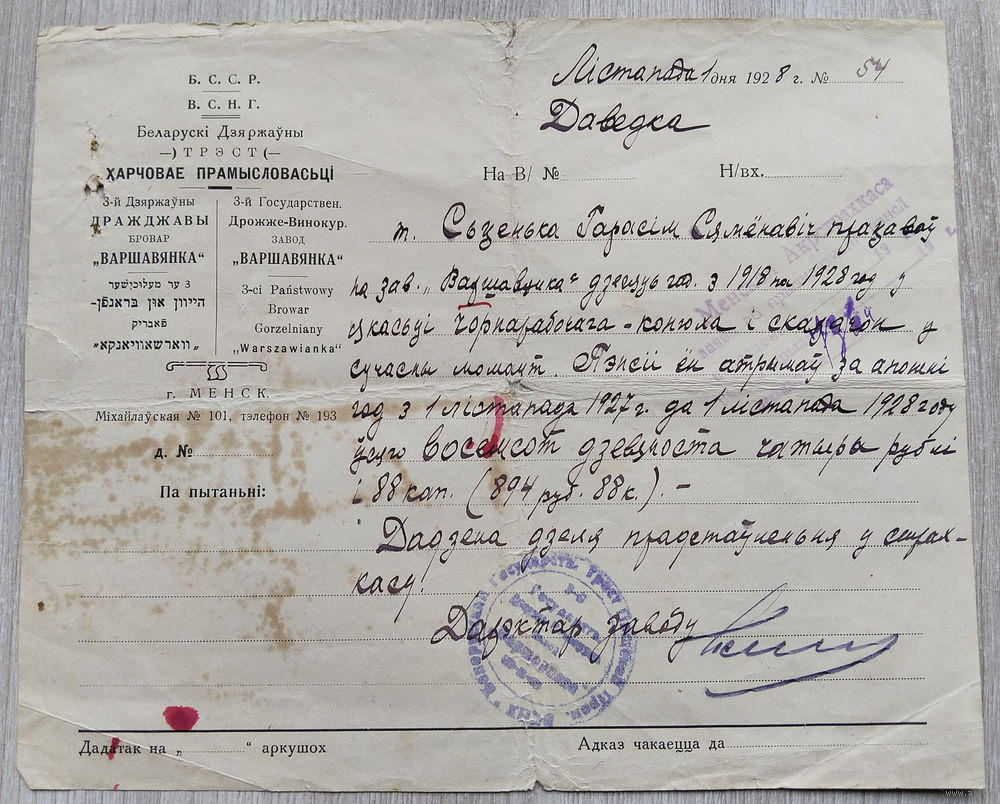 Б. С. С. Р.
В. С. Н. Г.
Беларускі Дзяржаўны
—) ТРЭСТ (—
ХАРЧОВАЕ ПРАМЫСЛОВАСЬЦІ
3-й Дзяржаўны
ДРАЖДЖАВЫ
БРОВАР
„ВАРШАВЯНКА"
3 ער מעלוכישער
הייוון און בראנפן-
פאבריק
„ווארשאוויאנקא"
3-й Государствен.
Дрожже-Винокур.
ЗАВОД
„ВАРШАВЯНКА"
3-ci Państwowy
Browar
Gorzelniany
„Warszawianka"
г. МЕНСК.
Міхайлаўская № 101, тэлефон № 193
д. №
Па пытаньні:
Лістапада 1 дня 1928 г. № 54
Даведка
На В/ №
Н/вх.
т. Сьзенька Гарасім Сямёнавіч працаваў
на зав. „Варшавянка" дзесяць год. з 1918 па 1928 год у
якасьці чорнарабочага - конюха і у
сучасны момэнт. Пэнсіі ён атрымаў за апошні
год з 1 лістапада 1927 г. да 1 лістапада 1928 году
ўсяго восемсот дзевяноста чатыры рублі
і 88 кап. (894 руб. 88 к.). -
Дадзена дзеля прадстаўленьня у страх-
касу.
Дырэктар заводу
Дадатак на „ " аркушох
Адказ чакаецца да